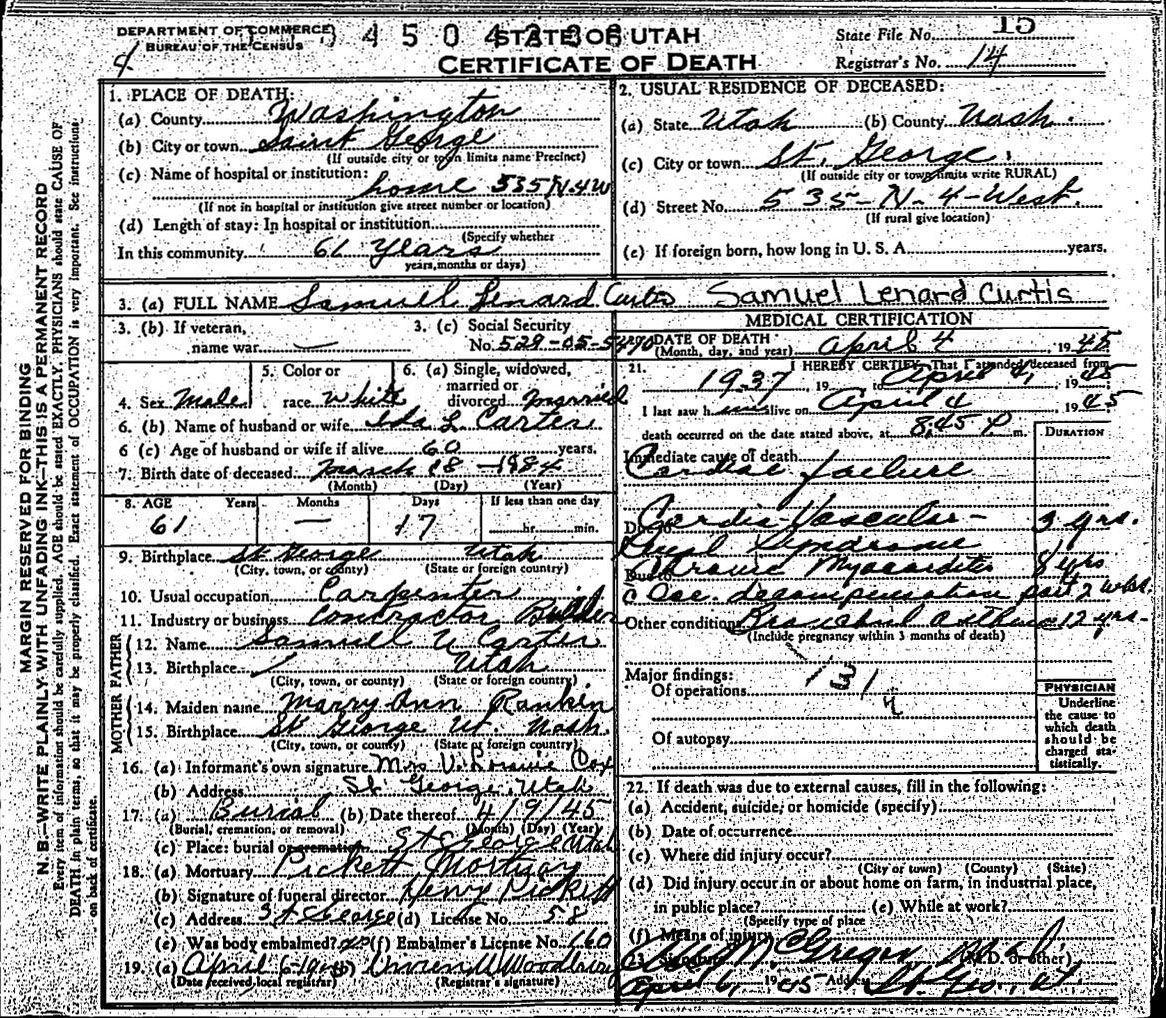 DEPARTMENT OF COMMERCE
BUREAU OF THE CENSUS
STATE OF UTAH
CERTIFICATE OF DEATH
State File No. 15
Registrar's No. 14
MARGIN RESERVED FOR BINDING
N. B.—WRITE PLAINLY WITH UNFADING INK—THIS IS A PERMANENT RECORD
Every item of information should be carefully supplied. AGE should be stated EXACTLY. PHYSICIANS should state CAUSE OF
DEATH in plain terms, so that it may be properly classified. Exact statement of OCCUPATION is very important. See instructions
on back of certificate.
1. PLACE OF DEATH:
(a) County Washington
(b) City or town Saint George
(If outside city or town limits name Precinct)
(c) Name of hospital or institution:
home 535 N. 4 W
(If not in hospital or institution give street number or location)
(d) Length of stay: In hospital or institution
(Specify whether
In this community 61 Years
years, months or days)
2. USUAL RESIDENCE OF DECEASED:
(a) State Utah (b) County Wash.
(c) City or town St. George.
(If outside city or town limits write RURAL)
(d) Street No. 535-N-4-West.
(If rural give location)
(e) If foreign born, how long in U. S. A. years.
3. (a) FULL NAME Samuel Lenard Curtis Samuel Lenard Curtis
3. (b) If veteran,
name war —
3. (c) Social Security
No. 529-05-5490
4. Sex Male
5. Color or
race White
6. (a) Single, widowed,
married or
divorced married
6. (b) Name of husband or wife Ida L. Carter
6 (c) Age of husband or wife if alive 60 years.
7. Birth date of deceased March 18 - 1884
(Month) (Day) (Year)
8. AGE Years Months Days If less than one day
61 — 17 hr. min.
9. Birthplace St George Utah
(City, town, or county) (State or foreign country)
10. Usual occupation Carpenter
11. Industry or business Contractor Builder
FATHER
12. Name Samuel U Carter
13. Birthplace Utah
(City, town, or county) (State or foreign country)
MOTHER
14. Maiden name Marry Ann Rankin
15. Birthplace St George Ut. Wash.
(City, town, or county) (State or foreign country)
16. (a) Informant's own signature Mrs V. Cox
(b) Address St George, Utah
17. (a) Burial (b) Date thereof 4/9/45
(Burial, cremation, or removal) (Month) (Day) (Year)
(c) Place: burial or cremation St George Utah
18. (a) Mortuary Pickett Mortuary
(b) Signature of funeral director Henry Pickett
(c) Address St George (d) License No. 58
(e) Was body embalmed? (f) Embalmer's License No. 160
19. (a) April 6-19 (b) Woodbury
(Date received local registrar) (Registrar's signature)
MEDICAL CERTIFICATION
20. DATE OF DEATH
(Month, day, and year) April 4, 1945
21. I HEREBY CERTIFY, That I attended deceased from
1937, 19 to April 4, 1945
I last saw him alive on April 4 1945
death occurred on the date stated above, at 8:45 P. m.
DURATION
Immediate cause of death
Cardiac failure
Due to Cardio Vascular - 3 yrs.
Renal Syndrome
Due to Myocarditis 8 yrs
c Occ. decompensation past 2 wks.
Other conditions Bronchial asthma 12 yrs.
(Include pregnancy within 3 months of death)
131
Major findings:
Of operations
Of autopsy
PHYSICIAN
Underline
the cause to
which death
should be
charged sta-
tistically.
22. If death was due to external causes, fill in the following:
(a) Accident, suicide, or homicide (specify)
(b) Date of occurrence
(c) Where did injury occur?
(City or town) (County) (State)
(d) Did injury occur in or about home on farm, in industrial place,
in public place? (e) While at work?
(Specify type of place
(f) Means of injury
23. Signature McGregor M.D. (M.D. or other)
April 6, 1945 Address St. Geo., Ut